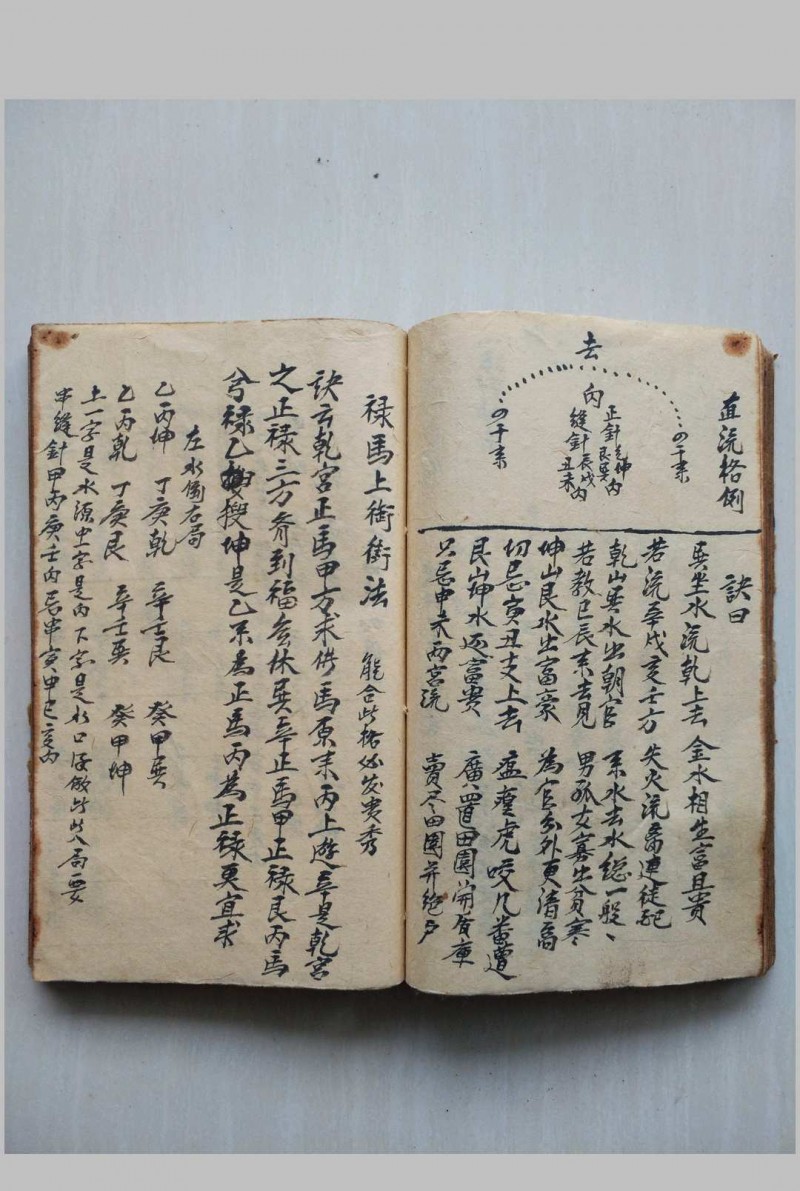 直流格例
去
四干來
內
正針乾坤艮巽內
縫針辰戌丑未內
四干來
訣曰
巽坐水流乾上去 金水相生富且貴
若流辛戌亥壬方 失火流離連徒配
乾山巽水出朝官 來水去水總一般丶
若教巳辰來去見 男孤女寡出貧寒
坤山艮水出富豪 為官分外更清高
切忌寅丑支上去 瘟瘟虎咬几番遭
艮山坤水逐富貴 廣置田園開質庫
只忌申未兩宮流 賣尽田園并絕戶
禄馬上街衢法 能合此格必发貴秀
訣云乾宮正馬甲方求借馬原來丙上遊辛是乾宮
之正禄三方齊到福為休巽辛正馬甲正禄艮丙馬
兮禄乙搜坤是乙來為正馬丙為正禄更宜求
左水倒右局
乙丙坤 丁庚乾 辛壬艮 癸甲巽
乙丙乾 丁庚艮 辛壬巽 癸甲坤
上一字是水源中字是內下字是水口後倣此此入局要
串縫針甲丙庚壬內忌串寅申巳亥內